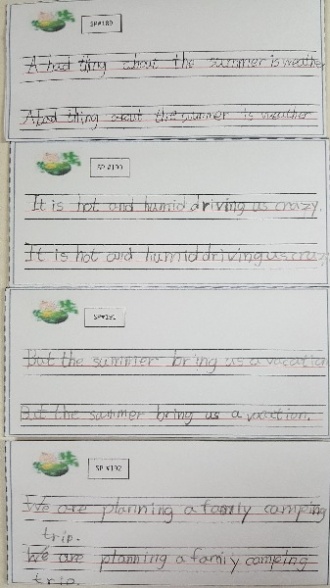 SP#189
A bad thing about the summer is weather
A bad thing about the summer is weather
SP #190
It is hot and humid driving us crazy.
It is hot and humid driving us crazy
SP#191
But the summer bring us a vacation
But the summer bring us a vacation.
SP #192
We are planning a family camping
trip.
We are planning a family camping
trip.